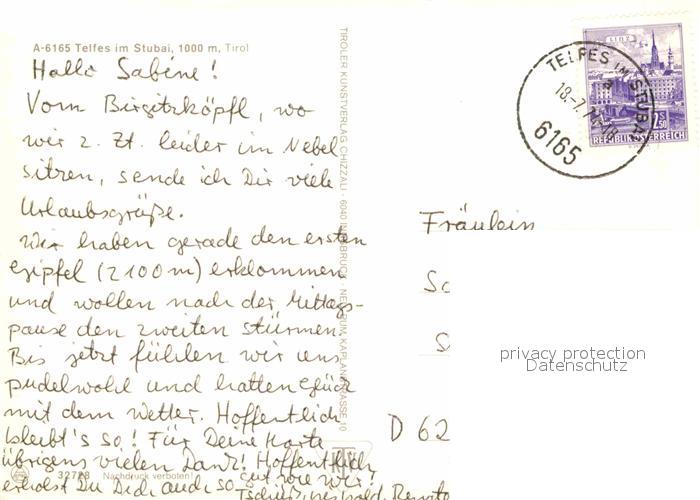 A-6165 Telfes im Stubai, 1000 m, Tirol
Hallo Sabine!
Vom Birgitzköpfl, wo
wir z. Zt. leider im Nebel
sitzen, sende ich Dir viele
Urlaubsgrüße.
Wir haben gerade den ersten
Gipfel (2100m) erklommen
und wollen nach der Mittags-
pause den zweiten stürmen.
Bis jetzt fühlen wir uns
pudelwohl und hatten Glück
mit dem Wetter. Hoffentlich
bleibt's so! Für Deine Karte
übrigens vielen Dank! Hoffentlich
erholst Du Dich auch so gut wie wir!
Tschüß, bis bald, Renate
32728 Nachdruck verboten!
TIROLER KUNSTVERLAG CHIZZALI · 6040 INNSBRUCK · NEU-RUM, KAPLANSTRASSE 10
LINZ
2S50
REPUBLIK ÖSTERREICH
TELFES IM STUBAI
a
18.-7.
6165
Fräulein
D 62
privacy protection
Datenschutz